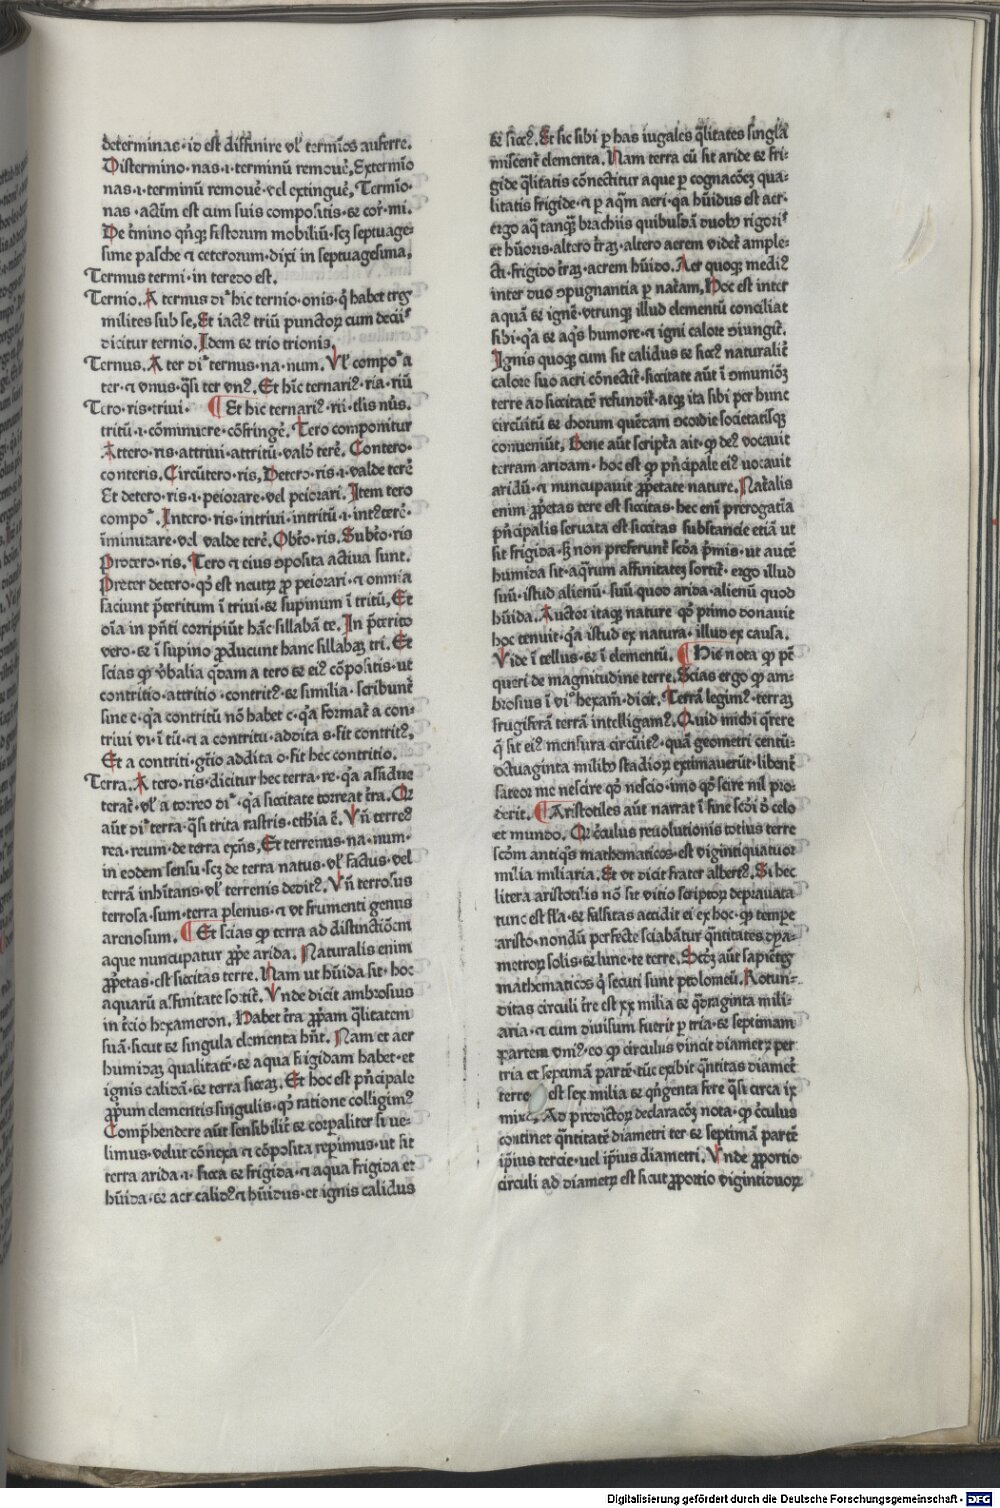 determinas·id est diffinire vl' termīos auferre.
Distermino·nas·i·terminū remouē, Extermīo
nas·i·terminū remouē·vel extinguē, Termīo·
nas·actiuū est cum suis compositis·et cor̄·mi.
De t̄mino qn̄qꝫ festorum mobiliū·scꝫ septuage-
sime pasche et ceterorum·dixi in septuagesima,
Termus termi·in teredo est.
Ternio. A ternus di⁊ hic ternio·onis·q̄ habet tres
milites sub se, Et iactꝰ triū punctoꝝ cum deciis
dicitur ternio. Idem et trio trionis.
Ternus. A ter di⁊ ternus·na·num. Vl' compo⁊ a
ter·et vnus·q̄si ter vnꝰ. Et hic ternariꝰ·ria·riū
Tero·ris·triui. ¶ Et hic ternariꝰ·rii·tlis nūs.
tritū·i·cōminuere·cōfringē. Tero componitur
Attero·ris·attriui·attritū·valō terē. Contero·
conteris. Circūtero·ris, Detero·ris·i·valde terē
Et detero·ris·i·peiorare·vel peiorari. Item tero
compo⁊. Intero·ris·intriui·intritū·i·intꝰterē·
īminutare·vel valde terē. Obt̄o·ris. Subt̄o·ris
Protero·ris. Tero et eius ꝯposita actiua sunt.
Preter detero·qd̄ est neutꝝ ꝓ peiorari·et omnia
faciunt p̄teritum ī triui·et supinum ī tritū, Et
oīa in pn̄ti corripiūt hāc sillabā te. In p̄terito
vero·et ī supino ꝓducunt hanc sillabaꝫ tri. Et
scias qꝫ v̄balia q̄dam a tero et eiꝰ cōpositis·ut
contritio·attritio·contritꝰ·et similia·scribunt̄
sine c·q̄a contritū nō habet c·q̄a format̄ a con-
triui vi·ī tū·et a contritu·addita s·fit contritꝰ,
Et a contriti·gt̄io addita o·fit hec contritio.
Terra. A tero·ris·dicitur hec terra·re·q̄a assidue
terat̄·vl' a torreo di⁊·q̄a siccitate torreat t̄ra. Qꝫ
aūt di⁊ terra·q̄si trita rastris·eth̄ia ē. Vn̄ terreꝰ
rea·reum·de terra exn̄s, Et terrenus·na·num·
in eodem sensu·scꝫ de terra natus·vl' factus·vel
terrā inhītans·vl' terrenis deditꝰ. Vn̄ terrosus
terrosa·sum·terra plenus·et vt frumenti genus
arenosum. ¶ Et scias qꝫ terra ad distinctiōem
aque nuncupatur ꝓpe arida. Naturalis enim
ꝓpetas·est siccitas terre. Nam ut hūida sit·hoc
aquarū affinitate sortit̄. Vnde dicit ambrosius
in t̄cio hexameron. Habet t̄ra ꝓpam q̄litatem
suā·sicut et singula elementa hn̄t. Nam et aer
humidaꝫ qualitatē·et aqua frigidam habet·et
ignis calidā·et terra siccaꝫ, Et hoc est pn̄cipale
ꝓpum elementis singulis·qd̄ ratione colligimꝰ
Comp̄hendere aūt sensibilit̄ et corpaliter si ue-
limus·velut cōnexa et cōposita repimus·ut sit
terra arida·i·sicca et frigida·et aqua frigida et
hūida·et aer calidꝰ et hūidus·et ignis calidus
et siccꝰ. Et sic sibi p̄ has iugales q̄litates singla
miscent̄ elementa. Nam terra cū sit aride et fri-
gide q̄litatis cōnectitur aque p̄ cognacōeꝫ qua-
litatis frigide·et p̄ aq̄m aeri·q̄a hūidus est aer·
ergo aq̄ tanqꝫ brachiis quibusdā duobꝫ rigoris
et hūoris·altero t̄raꝫ·altero aerem videt̄ ample-
cti·frigido t̄raꝫ·aerem hūido. Aer quoqꝫ mediꝰ
inter duo ꝯpugnantia p̄ nat̄am, Hoc est inter
aquā et ignē·vtrunqꝫ illud elementū conciliat
sibi·q̄a et aq̄s humore·et igni calore ꝯiungit̄.
Ignis quoqꝫ cum sit calidus et siccꝰ naturalit̄
calore suo aeri cōnectit̄·siccitate aūt ī ꝯmuniōꝫ
terre ad siccitatē refundit̄·atqꝫ ita sibi per hunc
circūitū et chorum quēdam ꝯcordie societatisqꝫ
conueniūt, Bene aūt script̄a ait·qꝫ deꝰ vocauit
terram aridam·hoc est qꝫ pn̄cipale eiꝰ vocauit
aridū·et nuncupauit ꝓpetate nature. Nat̄alis
enim ꝓpetas tere est siccitas·hec enī prerogatīa
pn̄cipalis seruata est·siccitas substancie·etiā ut
sit frigida·sꝫ non preferunt̄ scd̄a p̄mis·ut autē
humida sit·aq̄rum affinitateꝫ sortit̄·ergo illud
suū·istud alienū·suū quod arida·alienū quod
hūida. Auctor itaqꝫ nature qd̄ primo donauit
hoc tenuit·q̄a istud ex natura·illud ex causa.
Vide ī tellus·et ī elementū. ¶ Hic nota qꝫ p̄t
queri de magnitudine terre. Scias ergo qꝫ am-
brosius ī vi⁊ hexam̄·dicit. Terrā legimꝰ·terraꝫ
frugiferā terrā intelligamꝰ. Quid michi q̄rere
q̄ sit eiꝰ mensura circūitꝰ·quā geometri centū-
octuaginta milibꝫ stadioꝝ extimauerūt·libent̄
fateor me nescire qd̄ nescio·imo qd̄ scire nil pro-
derit. ¶ Aristotiles aūt narrat ī fine scd̄i d̄ celo
et mundo. Qꝫ c̄culus reuolutionis totius terre
scd̄m antiq̄s mathematicos·est vigintiquatuor
milia miliaria. Et vt dicit frater albertꝰ. Si hec
litera aristotilis nō sit vitio scriptoꝝ deprauata
tunc est fl'a·et falsitas accidit ei ex hoc·qꝫ tempe
aristo·nondū perfecte sciabātur qn̄titates dya-
metroꝝ solis·et lune·te terre. Scd̄ꝫ aūt sapiētes
mathematicos q̄ secuti sunt ptolomeū. Rotun-
ditas circuli t̄re est xx milia et q̄draginta mili-
aria·et cum diuisum fuerit p̄ tria·et septimam
partem vniꝰ·eo qꝫ circulus vincit diametꝝ per
tria et septimā partē·tūc exibit qn̄titas diamet̄
terre est sex milia et qn̄genta fere q̄si circa ix
mixᵉ. Ad predictoꝝ declaracōꝫ nota·qꝫ c̄culus
continet qn̄titatē diametri ter et septimā partē
ip̄ius tercie·uel ip̄ius diametri. Vnde ꝓportio
circuli ad diametꝝ est sicut ꝓportio vigintiduoꝝ
Digitalisierung gefördert durch die Deutsche Forschungsgemeinschaft - DFG